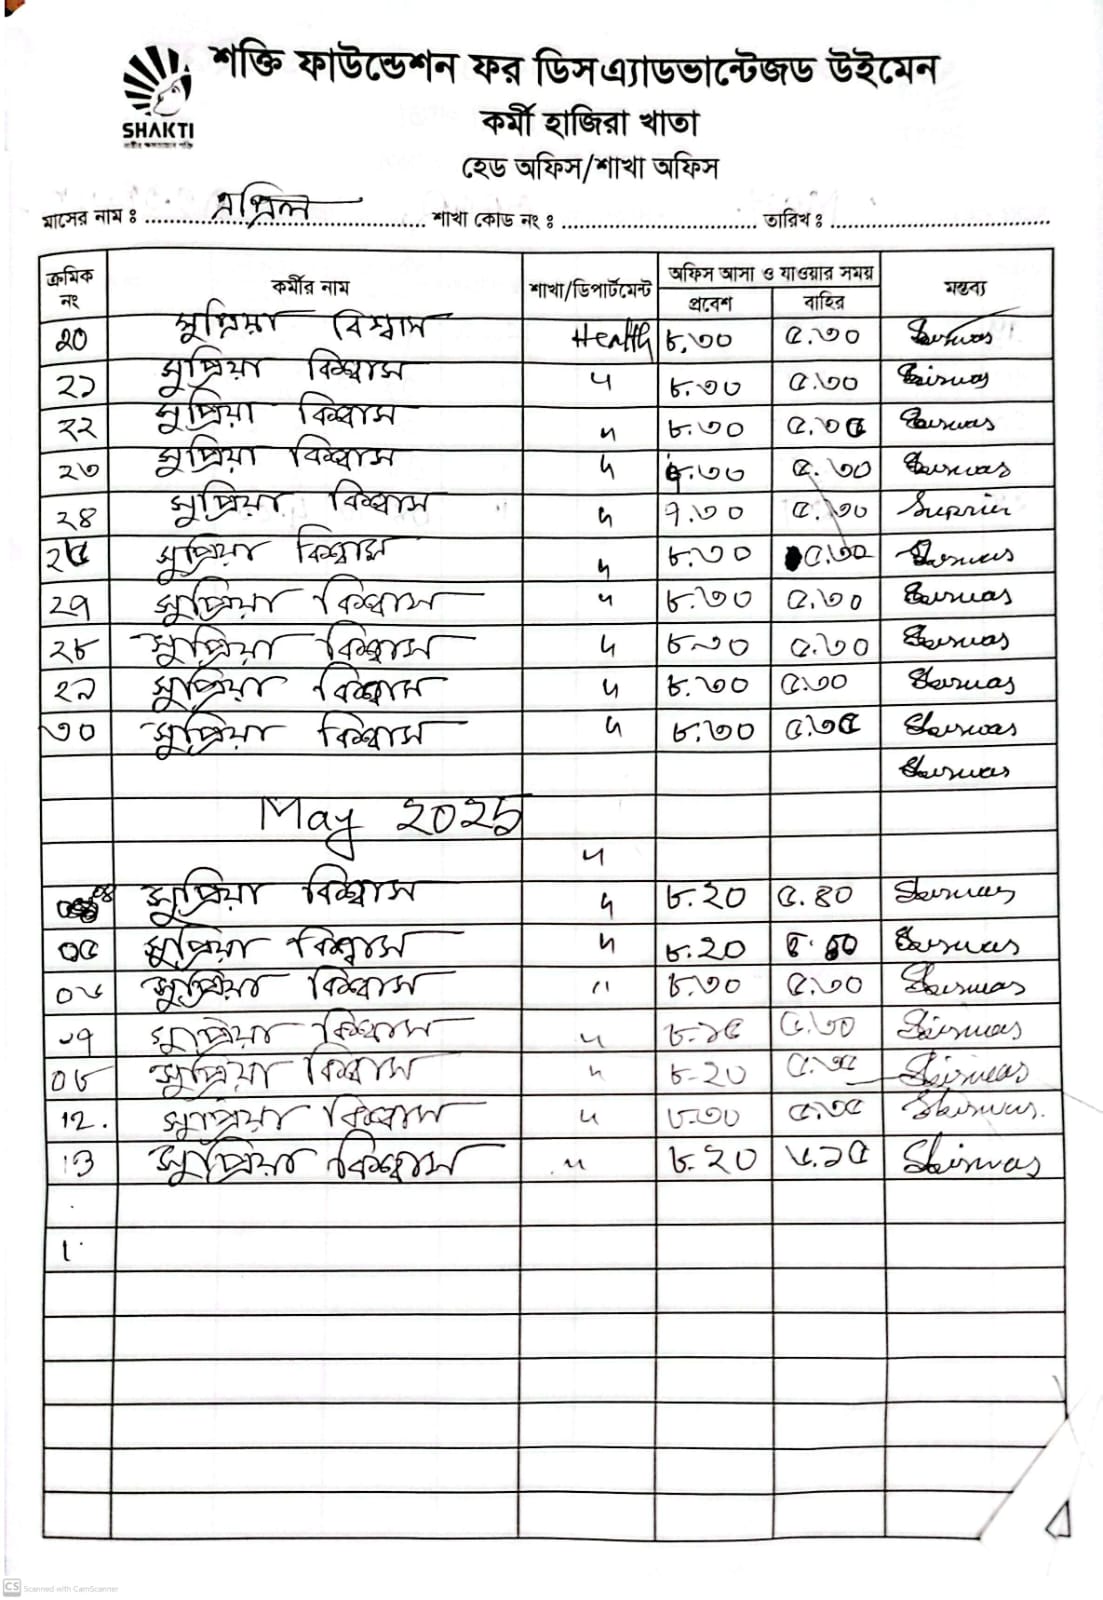 শক্তি ফাউন্ডেশন ফর ডিসএ্যাডভান্টেজড উইমেন
SHAKTI
কর্মী হাজিরা খাতা
হেড অফিস/শাখা অফিস
মাসের নাম ঃ এপ্রিল শাখা কোড নং ঃ তারিখ ঃ
ক্রমিক নং কর্মীর নাম শাখা/ডিপার্টমেন্ট অফিস আসা ও যাওয়ার সময় প্রবেশ বাহির মন্তব্য
২০ সুপ্রিয়া বিশ্বাস Health ৮.৩০ ৫.৩০ Sbiswas
২১ সুপ্রিয়া বিশ্বাস " ৮.৩০ ৫.৩০ Sbiswas
২২ সুপ্রিয়া বিশ্বাস " ৮.৩০ ৫.৩৫ Sbiswas
২৩ সুপ্রিয়া বিশ্বাস " ৮.৩০ ৫.৩০ Sbiswas
২৪ সুপ্রিয়া বিশ্বাস " ৭.৩০ ৫.৩০
সুপ্রিয়া বিশ্বাস " ৮.৩০ ৫.৩০ Sbiswas
২৭ সুপ্রিয়া বিশ্বাস " ৮.৩০ ৫.৩০ Sbiswas
২৮ সুপ্রিয়া বিশ্বাস " ৮.৩০ ৫.৩০ Sbiswas
২৯ সুপ্রিয়া বিশ্বাস " ৮.৩০ ৫.৩০ Sbiswas
৩০ সুপ্রিয়া বিশ্বাস " ৮.৩০ ৫.৩৫ Sbiswas
Sbiswas
May ২০২৫
"
০৪ সুপ্রিয়া বিশ্বাস " ৮.২০ ৫.৪০ Sbiswas
০৫ সুপ্রিয়া বিশ্বাস " ৮.২০ Sbiswas
০৬ সুপ্রিয়া বিশ্বাস " ৮.৩০ ৫.৩০ Sbiswas
০৭ সুপ্রিয়া বিশ্বাস " ৮.১৫ ৫.৩০ Sbiswas
০৮ সুপ্রিয়া বিশ্বাস " ৮.২০ ৫.৩৫ Sbiswas
12. সুপ্রিয়া বিশ্বাস " ৮.৩০ ৫.৩৫ Sbiswas.
13 সুপ্রিয়া বিশ্বাস " ৮.২০ ৬.১৫ Sbiswas
CS Scanned with CamScanner